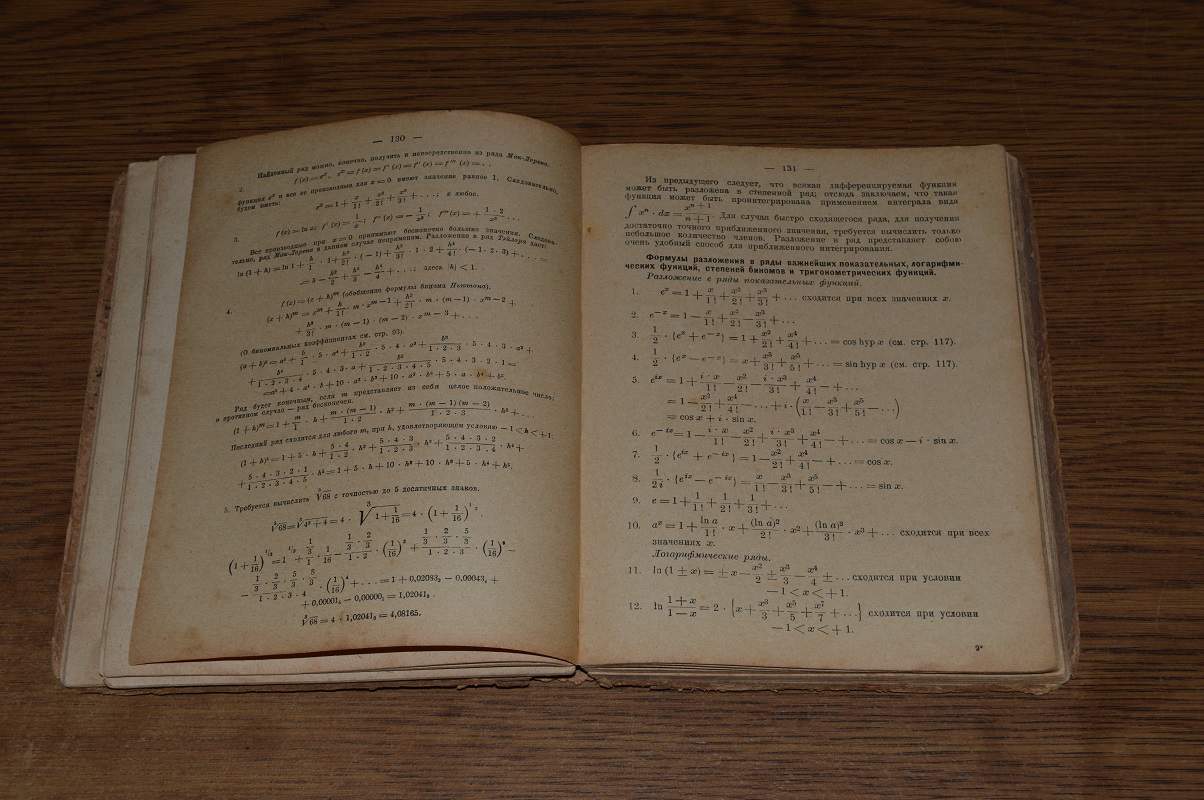 — 130 —
Найденный ряд можно, конечно, получить и непосредственно из ряда Мак-Лорена.
2. f(x) = eˣ, eˣ = f(x) = f′(x) = f″(x) = f‴(x) = . .
функция eˣ и все ее производные для x = 0 имеют значение равное 1. Следовательно,
будем иметь:
eˣ = 1 + x/1! + x²/2! + x³/3! + . . . ; x любое.
3. f(x) = ln x; f′(x) = 1/x; f″(x) = — 1/x²; f‴(x) = + 1 · 2/x³ . . .
Все производные при x = 0 принимают бесконечно большие значения. Следова-
тельно, ряд Мак-Лорена в данном случае неприменим. Разложение в ряд Тейлора дает:
ln (1 + h) = ln 1 + h/1 · 1 + h²/2! · (— 1) + h³/3! · 1 · 2 + h⁴/4! (— 1 · 2 · 3) + . . . =
= h — h²/2 + h³/3 — h⁴/4 + . . . ; здесь |h| < 1.
4. f(x) = (x + h)ᵐ (обобщение формулы бинома Ньютона).
(x + h)ᵐ = xᵐ + h/1 · m · xᵐ⁻¹ + h²/2! · m · (m — 1) · xᵐ⁻² +
+ h³/3! · m · (m — 1) · (m — 2) · xᵐ⁻³ + . . .
(О биномиальных коэффициентах см. стр. 93).
(a + h)⁵ = a⁵ + h/1 · 5 · a⁴ + h²/1 · 2 · 5 · 4 · a³ + h³/1 · 2 · 3 · 5 · 4 · 3 · a² +
+ h⁴/1 · 2 · 3 · 4 · 5 · 4 · 3 · 2 · a + h⁵/1 · 2 · 3 · 4 · 5 · 5 · 4 · 3 · 2 · 1 =
Ряд будет конечным, если m представляет из себя целое положительное число;
в противном случае — ряд бесконечен.
(1 + h)ᵐ = 1 + m/1 · h + m · (m — 1)/1 · 2 · h² + m · (m — 1) (m — 2)/1 · 2 · 3 · h³ + . . .
Последний ряд сходится для любого m, при h, удовлетворяющем условию — 1 < h < + 1.
(1 + h)⁵ = 1 + 5 · h + 5 · 4/1 · 2 · h² + 5 · 4 · 3/1 · 2 · 3 · h³ + 5 · 4 · 3 · 2/1 · 2 · 3 · 4 · h⁴ +
+ 5 · 4 · 3 · 2 · 1/1 · 2 · 3 · 4 · 5 · h⁵ = 1 + 5 · h + 10 · h² + 10 · h³ + 5 · h⁴ + h⁵.
5. Требуется вычислить ∛68 с точностью до 5 десятичных знаков.
∛68 = ∛(4³ + 4) = 4 · ∛(1 + 1/16) = 4 · (1 + 1/16)^1/3.
(1 + 1/16)^1/3 = 1^1/3 + 1/3/1 · 1/16 — 1/3 · 2/3/1 · 2 · (1/16)² + 1/3 · 2/3 · 5/3/1 · 2 · 3 · (1/16)³ —
— 1/3 · 2/3 · 5/3 · 8/3/1 · 2 · 3 · 4 · (1/16)⁴ + . . . = 1 + 0,02083₃ — 0,00043₄ +
+ 0,00001₅ — 0,00000₁ = 1,02041₃ .
∛68 = 4 · 1,02041₃ = 4,08165.
— 131 —
Из предыдущего следует, что всякая дифференцируемая функция
может быть разложена в степенной ряд; отсюда заключаем, что такая
функция может быть проинтегрирована применением интеграла вида
∫ xⁿ · dx = xⁿ⁺¹/n + 1. Для случая быстро сходящегося ряда, для получения
достаточно точного приближенного значения, требуется вычислить только
небольшое количество членов. Разложение в ряд представляет собою
очень удобный способ для приближенного интегрирования.
Формулы разложения в ряды важнейших показательных, логарифми-
ческих функций, степеней биномов и тригонометрических функций.
Разложение в ряды показательных функций.
1. eˣ = 1 + x/1! + x²/2! + x³/3! + . . . сходится при всех значениях x.
2. e⁻ˣ = 1 — x/1! + x²/2! — x³/3! + . . .
3. 1/2 · {eˣ + e⁻ˣ} = 1 + x²/2! + x⁴/4! + . . . = cos hyp x (см. стр. 117).
4. 1/2 · {eˣ — e⁻ˣ} = x + x³/3! + x⁵/5! + . . . = sin hyp x (см. стр. 117).
5. eⁱˣ = 1 + i · x/1! — x²/2! — i · x³/3! + x⁴/4! + — + . . .
= 1 — x²/2! + x⁴/4! — . . . + i · (x/1! — x³/3! + x⁵/5! — . . .)
= cos x + i · sin x.
6. e⁻ⁱˣ = 1 — i · x/1! — x²/2! + i · x³/3! + x⁴/4! — — + . . . = cos x — i · sin x.
7. 1/2 · {eⁱˣ + e⁻ⁱˣ} = 1 — x²/2! + x⁴/4! — + . . . = cos x.
8. 1/2i · {eⁱˣ — e⁻ⁱˣ} = x/1! — x³/3! + x⁵/5! — + . . . = sin x.
9. e = 1 + 1/1! + 1/2! + 1/3! + . . .
10. aˣ = 1 + ln a/1! · x + (ln a)²/2! · x² + (ln a)³/3! · x³ + . . . сходится при всех
значениях x.
Логарифмические ряды.
11. ln (1 ± x) = ± x — x²/2 ± x³/3 — x⁴/4 ± . . . сходится при условии
— 1 < x < + 1.
12. ln 1 + x/1 — x = 2 · {x + x³/3 + x⁵/5 + x⁷/7 + . . .} сходится при условии
— 1 < x < + 1.
9*